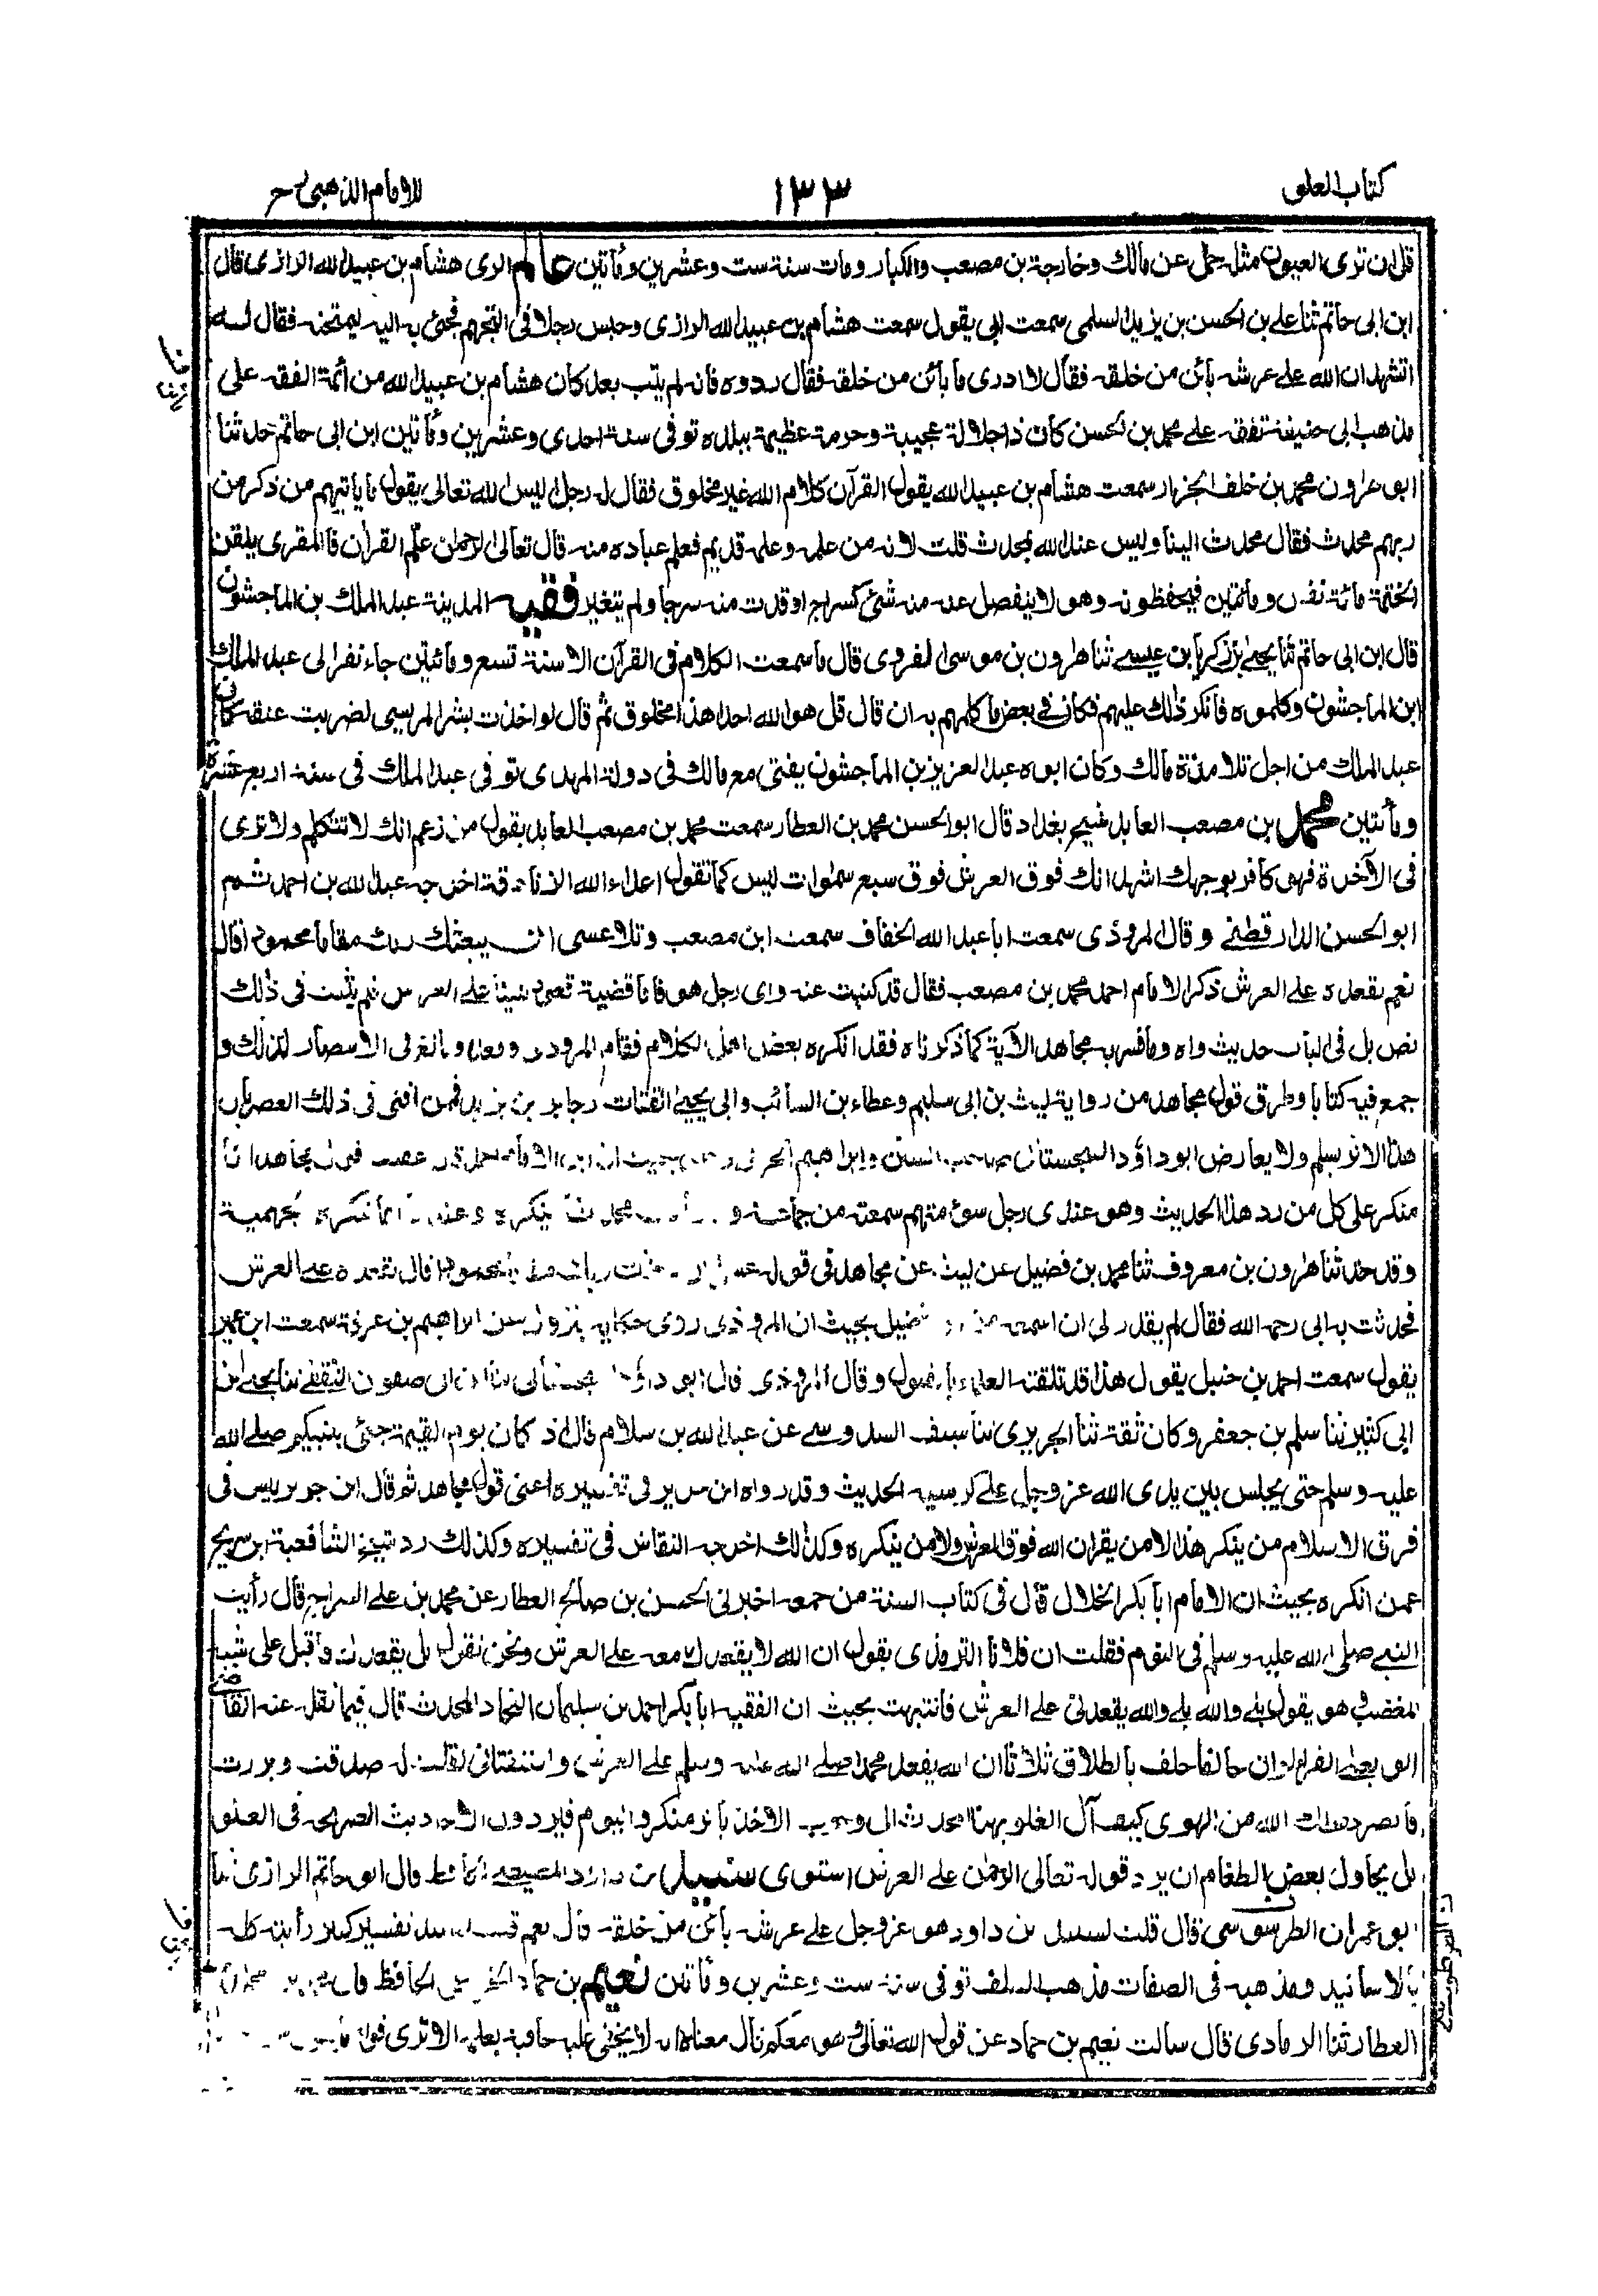 كتاب العلو
١٣٣
للامام الذهبى رح
قل ان ترى العيون مثله حمل عن مالك وخارجة بن مصعب والكبار ومات سنة ست وعشرين ومأتين عالم الرى هشام بن عبيد الله الرازى قال
ابن ابى حاتم ثنا على بن الحسن بن يزيد السلمى سمعت ابى يقول سمعت هشام بن عبيد الله الرازى وحبس رجلا فى التجهم فجئ به اليه ليمتحنه فقال له
اتشهد ان الله على عرشه بائن من خلقه فقال لا ادرى ما بائن من خلقه فقال ردوه فانه لم يتب بعد كان هشام بن عبيد الله من ائمة الفقه على
مذهب ابى حنيفة تفقه على محمد بن الحسن كان ذا جلالة عجيبة وحرمة عظيمة ببلده توفى سنة احدى وعشرين ومأتين ابن ابى حاتم حدثنا
ابو هارون محمد بن خلف الجزار سمعت هشام بن عبيد الله يقول القرآن كلام الله غير مخلوق فقال له رجل اليس الله تعالى يقول ما ياتيهم من ذكر من
ربهم محدث فقال محدث الينا وليس عند الله بمحدث قلت لانه من علمه وعلمه قديم فعلم عباده منه قال تعالى الرحمن علم القران فالمقرى يلقن
الختمة مائة نفس ومائتين فيحفظونه وهو لا ينفصل عنه منه شئ كسراج اوقدت منه سرجا ولم يتغير فقيه المدينة عبد الملك بن الماجشون
قال ابن ابى حاتم ثنا يحيى بن زكريا بن عيسى ثنا هارون بن موسى الفروى قال ما سمعت الكلام فى القرآن الا سنة تسع ومائتين جاء نفر الى عبد الملك
ابن الماجشون وكلموه فانكر ذلك عليهم فكان فى بعض ما كلمهم به ان قال قل هو الله احد هذا مخلوق ثم قال لو اخذت بشر المريسى لضربت عنقه كان
عبد الملك من اجل تلامذة مالك وكان ابوه عبد العزيز بن الماجشون يفتى مع مالك فى دولة المهدى توفى عبد الملك فى سنة اربع عشرة
ومأتين محمد بن مصعب العابد شيخ بغداد قال ابو الحسن محمد بن العطار سمعت محمد بن مصعب العابد يقول من زعم انك لا تتكلم ولا ترى
فى الآخرة فهو كافر بوجهك اشهد انك فوق العرش فوق سبع سموات ليس كما تقول اعداء الله الزنادقة اخرجه عبد الله بن احمد ثم
ابو الحسن الدارقطنى وقال المروذى سمعت ابا عبد الله الخفاف سمعت ابن مصعب وتلا عسى ان يبعثك ربك مقاما محمودا قال
نعم يقعده على العرش ذكر الامام احمد محمد بن مصعب فقال قد كتبت عنه واى رجل هو فاما قضية قعود نبينا على العرش فلم يثبت فى ذلك
نص بل فى الباب حديث واه وما فسر به مجاهد الآية كما ذكرناه فقد انكره بعض اهل الكلام فقام المروذى وقعد وبالغ فى الانتصار لذلك و
جمع فيه كتابا وطرق قول مجاهد من رواية ليث بن ابى سليم وعطاء بن السائب وابى يحيى القتات وجابر بن يزيد فمن افتى فى ذلك العصر بان
هذا الاثر يسلم ولا يعارض ابو داؤد السجستانى صاحب السنن وابراهيم الحربى
منكر على كل من رد هذا الحديث وهو عندى رجل سوء متهم سمعته من جماعة و محدثا ينكره وعندنا انما تنكره الجهمية
وقد حدثنا هارون بن معروف ثنا محمد بن فضيل عن ليث عن مجاهد فى قوله عسى ان يبعثك ربك مقاما محمودا قال يقعده على العرش
فحدثت به ابى رحمه الله فقال لم يقدر لى ان اسمعه من ابن فضيل بحيث ان المروذى روى حكاية بنزول عن ابراهيم بن عرفة سمعت ابن عمير
يقول سمعت احمد بن حنبل يقول هذا قد تلقته العلماء بالقبول وقال المروذى قال ابو داؤد السجستانى ثنا ابن ابى صفوان الثقفى ثنا يحيى بن
ابى كثير ثنا سلم بن جعفر وكان ثقة ثنا الجريرى ثنا سيف السدوسى عن عبد الله بن سلام قال اذا كان يوم القيمة جئ بنبيكم صلى الله
عليه وسلم حتى يجلس بين يدى الله عز وجل على كرسيه الحديث وقد رواه ابن جرير فى تفسيره اعنى قول مجاهد ثم قال ابن جرير ليس فى
فرق الاسلام من ينكر هذا لا من يقر ان الله فوق العرش ولا من ينكره وكذلك اخرجه النقاش فى تفسيره وكذلك رد شيخ الشافعية ابن سريج
عمن انكره بحيث ان الامام ابا بكر الخلال قال فى كتاب السنة من جمعه اخبرنى الحسن بن صالح العطار عن محمد بن على السراج قال رأيت
النبى صلى الله عليه وسلم فى النوم فقلت ان فلانا الترمذى يقول ان الله لا يقعدك معه على العرش ونحن نقول بل يقعدك فاقبل على شبه
المغضب وهو يقول بلى والله بلى والله يقعدنى على العرش فانتبهت بحيث ان الفقيه ابا بكر احمد بن سليمان النجاد المحدث قال فيما نقله عنه القاضى
ابو يعلى الفراء لو ان حالفا حلف بالطلاق ثلاثا ان الله يقعد محمدا صلى الله عليه وسلم على العرش واستفتانى لقلت له صدقت وبررت
فابصر حفظك الله من الهوى كيف آل الغلو بهذا المحدث الى وجوب الاخذ باثر منكر واليوم فيردون الاحاديث الصريحة فى العلو
بل يحاول بعض الطغام ان يرد قوله تعالى الرحمن على العرش استوى سنيد بن داود المصيصى الحافظ قال ابو حاتم الرازى ثنا
ابو عمران الطرسوسى قال قلت لسنيد بن داود هو عز وجل على عرشه بائن من خلقه قال نعم تفسير كبير رأيته كله
بالاسانيد ومذهبه فى الصفات مذهب السلف توفى سنة ست وعشرين ومأتين نعيم بن حماد الحافظ قال
العطار ثنا الرمادى قال سالت نعيم بن حماد عن قول الله تعالى وهو معكم قال معناه انه لا يخفى عليه خافية بعلمه الا ترى قوله